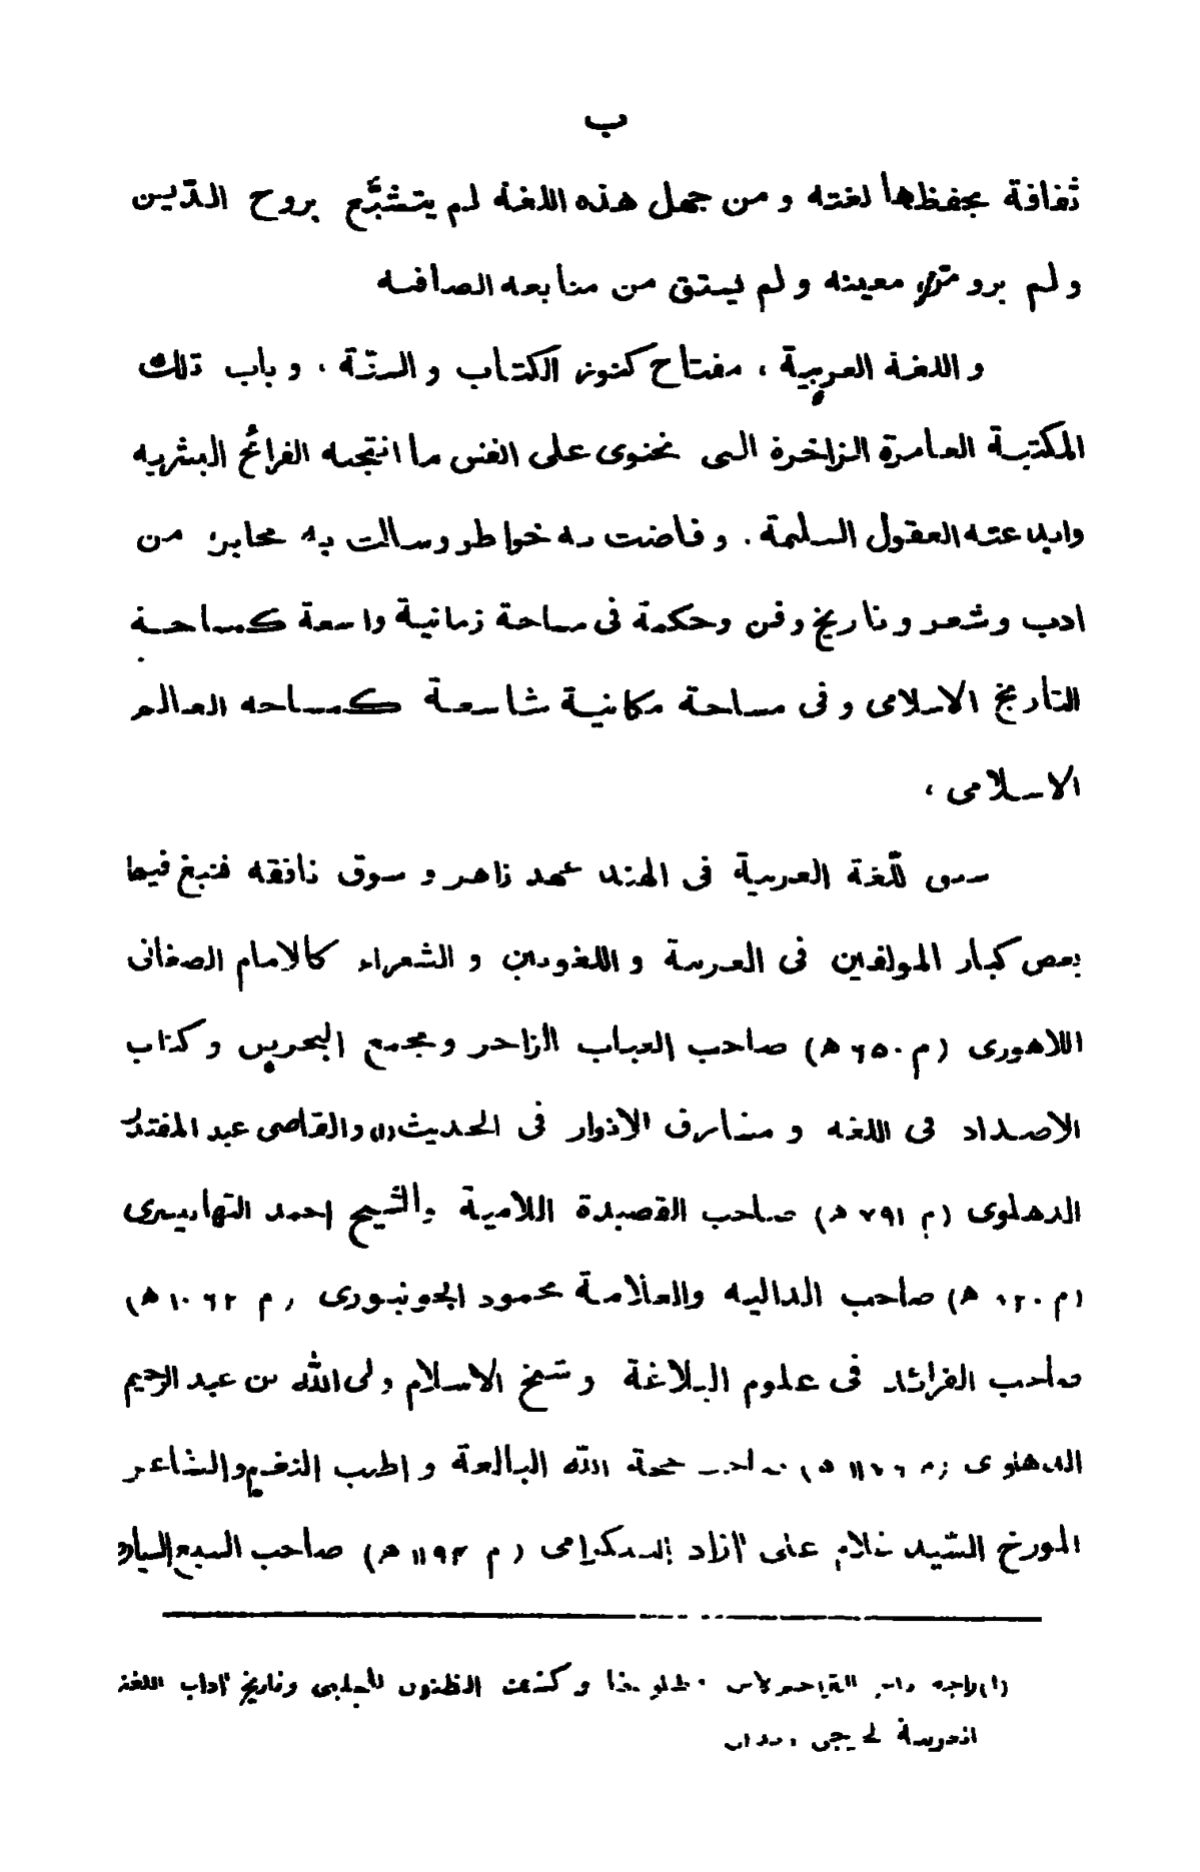 ب
ثقافة يحفظها لغته و من جهل هذه اللغة لم يتشبّع بروح الدّين
و لم يرو من معينه و لم يستق من منابعه الصافيه
و اللغة العربية ، مفتاح كنوز الكتاب و السنّة ، و باب تلك
المكتبة العامرة الزاخرة التى تحتوى على انفس ما انتجته القرائح البشريه
وابدعته العقول السليمة . و فاضت به خواطر وسالت به محابر من
ادب و شعر و تاريخ و فن وحكمة فى مساحة زمانية واسعة كمساحة
التأريخ الاسلامى و فى مساحة مكانية شاسعة كمساحه العالم
الاسلامى ،
للّغة العربية فى الهند عهد زاهر و سوق نافقه فنبغ فيها
بعض كبار المولفين فى العربية و اللغويين و الشعراء كالامام الصغانى
اللاهورى (م ٦٥٠ ھ) صاحب العباب الزاخر ومجمع البحرين و كتاب
الاضداد فى اللغه و مشارق الانوار فى الحديث(١) والقاضى عبد المقتدر
الدهلوى (م ٧٩١ ھ) صاحب القصيدة اللامية والشيخ احمد التهانيسرى
(م ٨٢٠ ھ) صاحب الداليه والعلامة محمود الجونپورى (م ١٠٦٢ ھ)
صاحب الفرائد فى علوم البلاغة و شيخ الاسلام ولى الله بن عبد الرحيم
الدهلوى (م ١١٧٦ ھ) صاحب حجة الله البالغة و اطيب النغم والشاعر
المورخ السّيد غلام على آزاد البلكرامى (م ١١٩٤ ھ) صاحب السبع السياره
(١) راجع و كشف الظنون للجلبى وتاريخ آداب اللغة
العربية